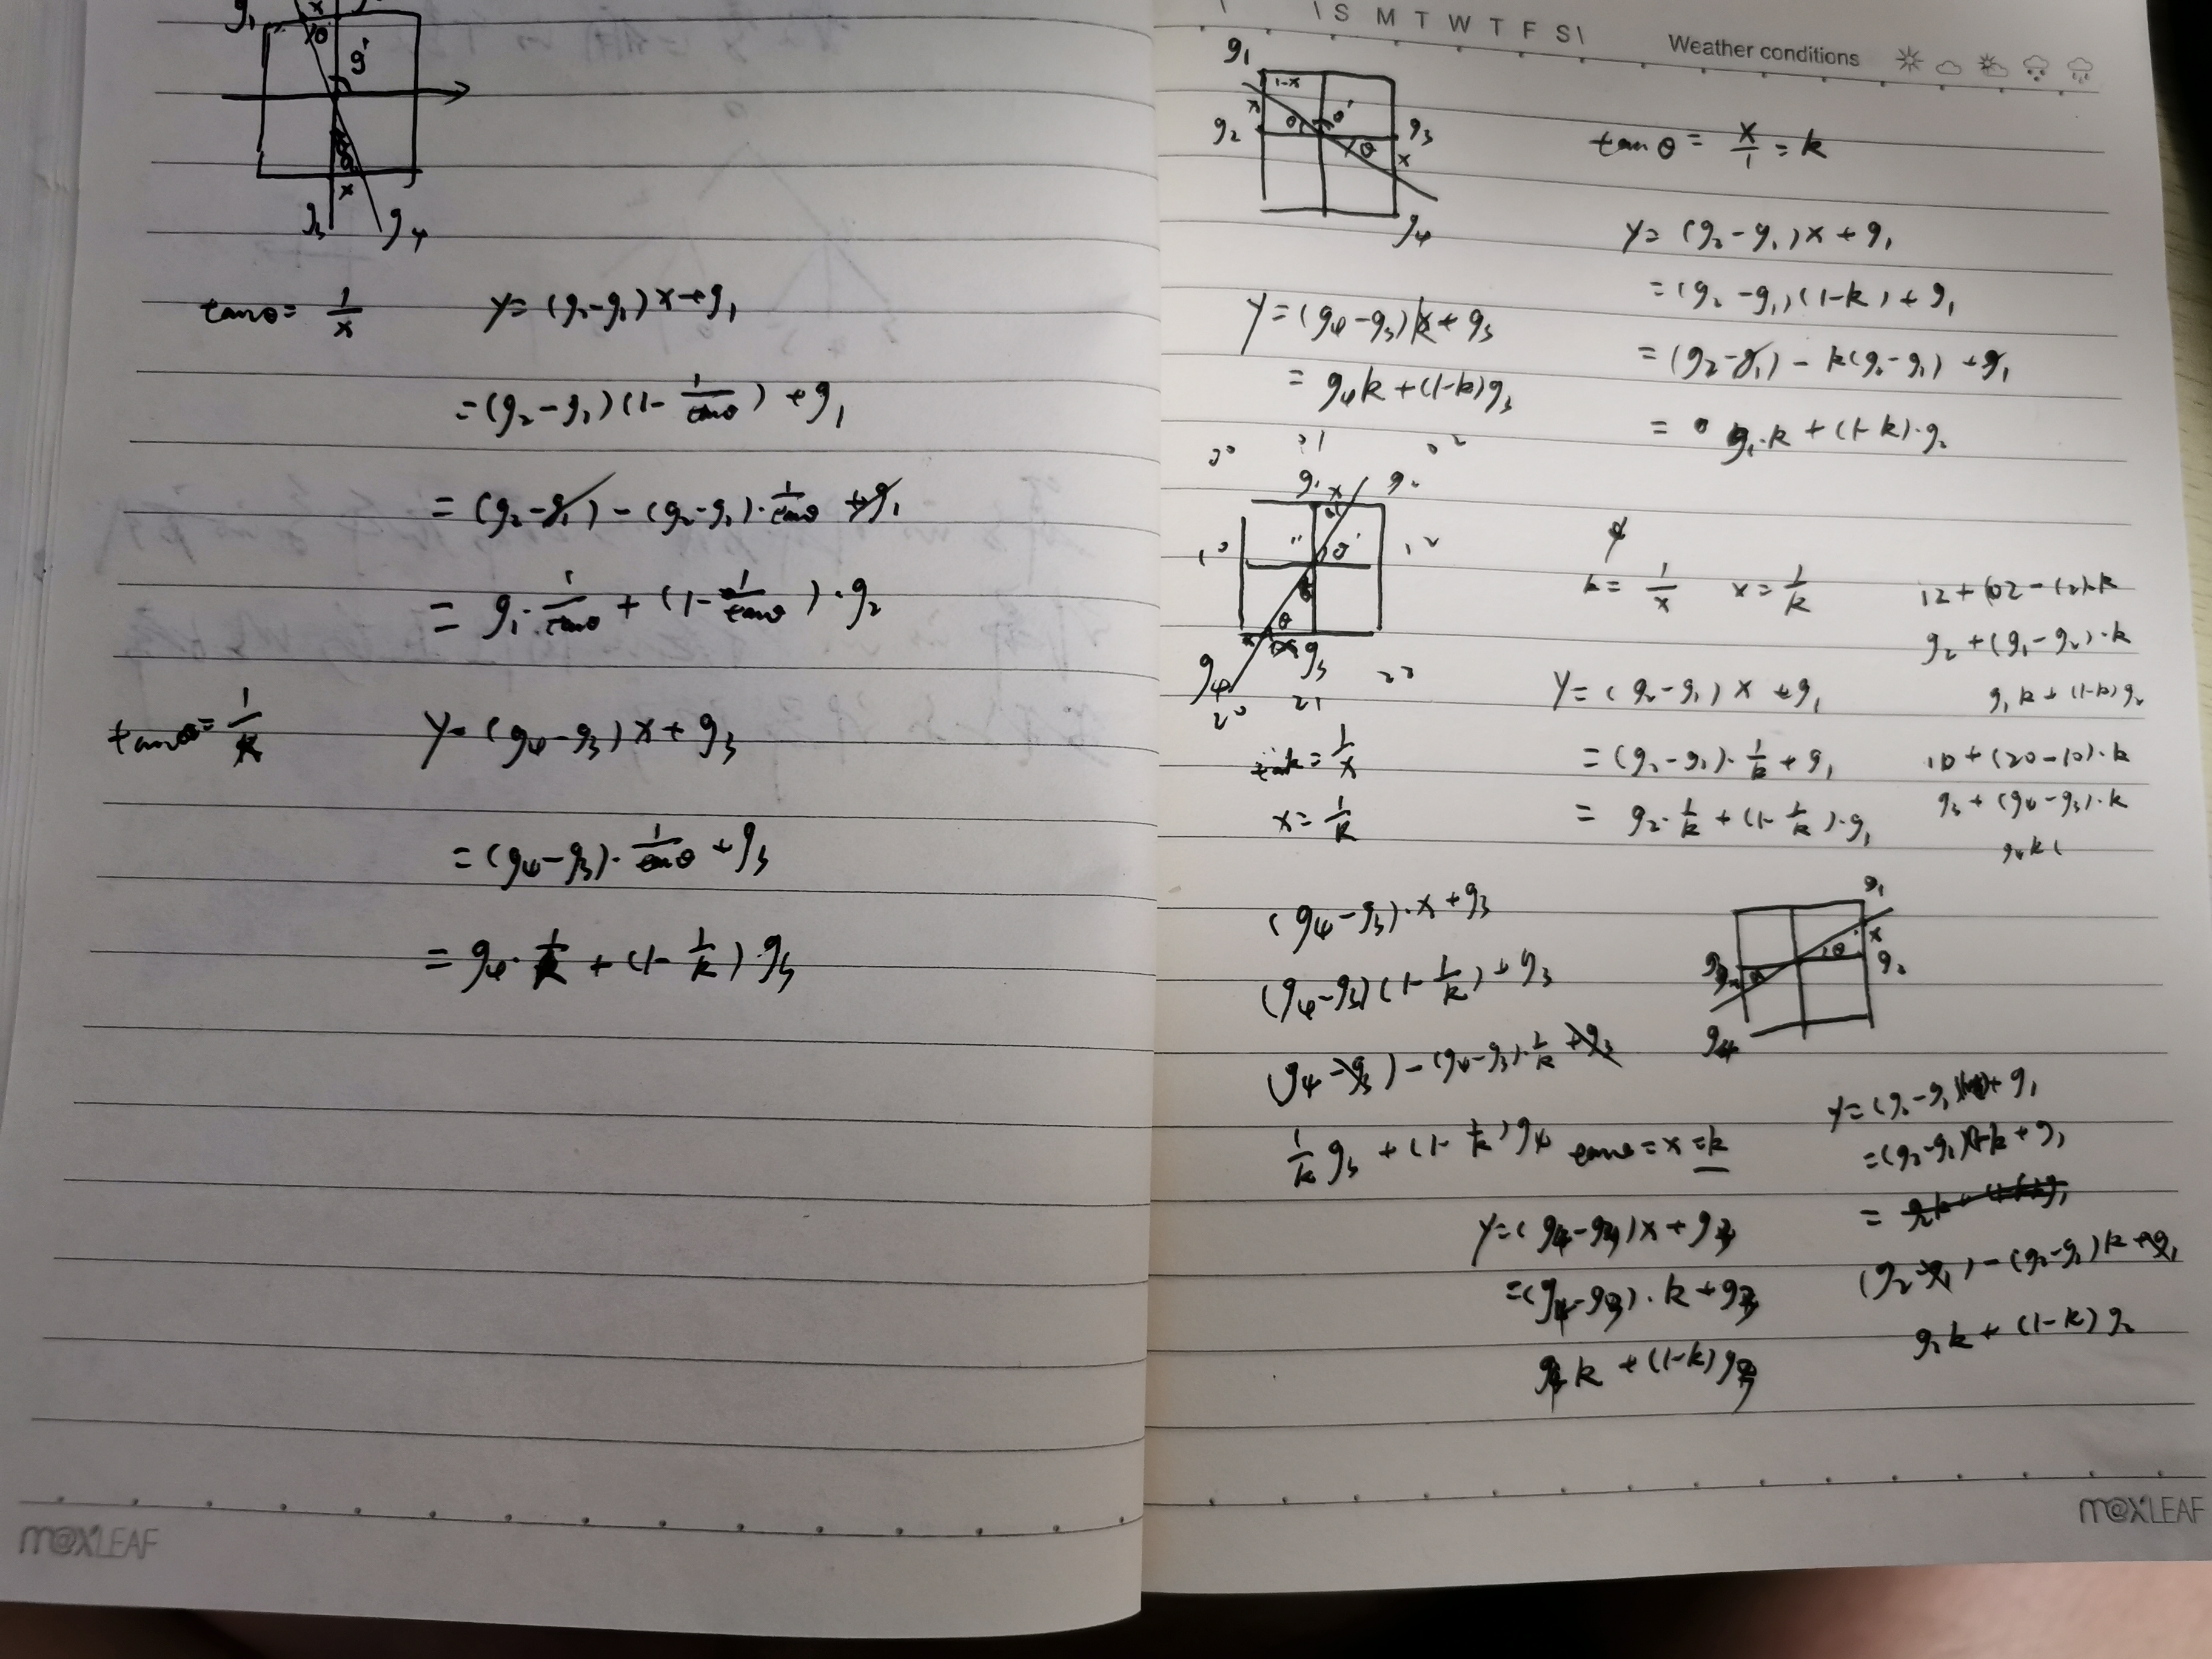 g₁ x
θ
g'
θ
x
g₃ g₄
tanθ = 1/x
y = (g₂-g₁)x+g₁
= (g₂-g₁)(1-1/tanθ)+g₁
= (g₂-g₁)-(g₂-g₁)·1/tanθ+g₁
= g₁·1/tanθ+(1-1/tanθ)·g₂
tanθ = 1/x
y = (g₄-g₃)x+g₃
= (g₄-g₃)·1/tanθ+g₃
= g₄·1/k+(1-1/k)g₃
m@xLEAF
S M T W T F S
Weather conditions
g₁
1-x
x θ θ'
g₂ g₃
θ x
g₄
tanθ = x/1 = k
y = (g₂-g₁)x+g₁
= (g₂-g₁)(1-k)+g₁
= (g₂-g₁)-k(g₂-g₁)+g₁
= g₁·k+(1-k)·g₂
y = (g₄-g₃)k+g₃
= g₄k+(1-k)g₃
g₁ x g₂
11 θ'
10 12
θ
g₄ g₃ 22
20 21
k = 1/x x = 1/k
12+(02-12)·k
g₂+(g₁-g₂)·k
g₁k+(1-k)g₂
10+(20-10)·k
g₃+(g₄-g₃)·k
g₄k(
y = (g₂-g₁)x+g₁
= (g₂-g₁)·1/k+g₁
= g₂·1/k+(1-1/k)·g₁
k = 1/x
x = 1/k
(g₄-g₃)·x+g₃
(g₄-g₃)(1-1/k)+g₃
(g₄-g₃)-(g₄-g₃)·1/k+g₃
1/k g₃+(1-1/k)g₄
g₁
θ x
g₃ g₂
x θ
g₄
tanθ = x = k
y = (g₄-g₃)x+g₃
= (g₄-g₃)·k+g₃
g₄k+(1-k)g₃
y = (g₂-g₁)(1-x)+g₁
= (g₂-g₁)(1-k+g₁
=
(g₂-g₁)-(g₂-g₁)k+g₁
g₁k+(1-k)g₂
m@xLEAF